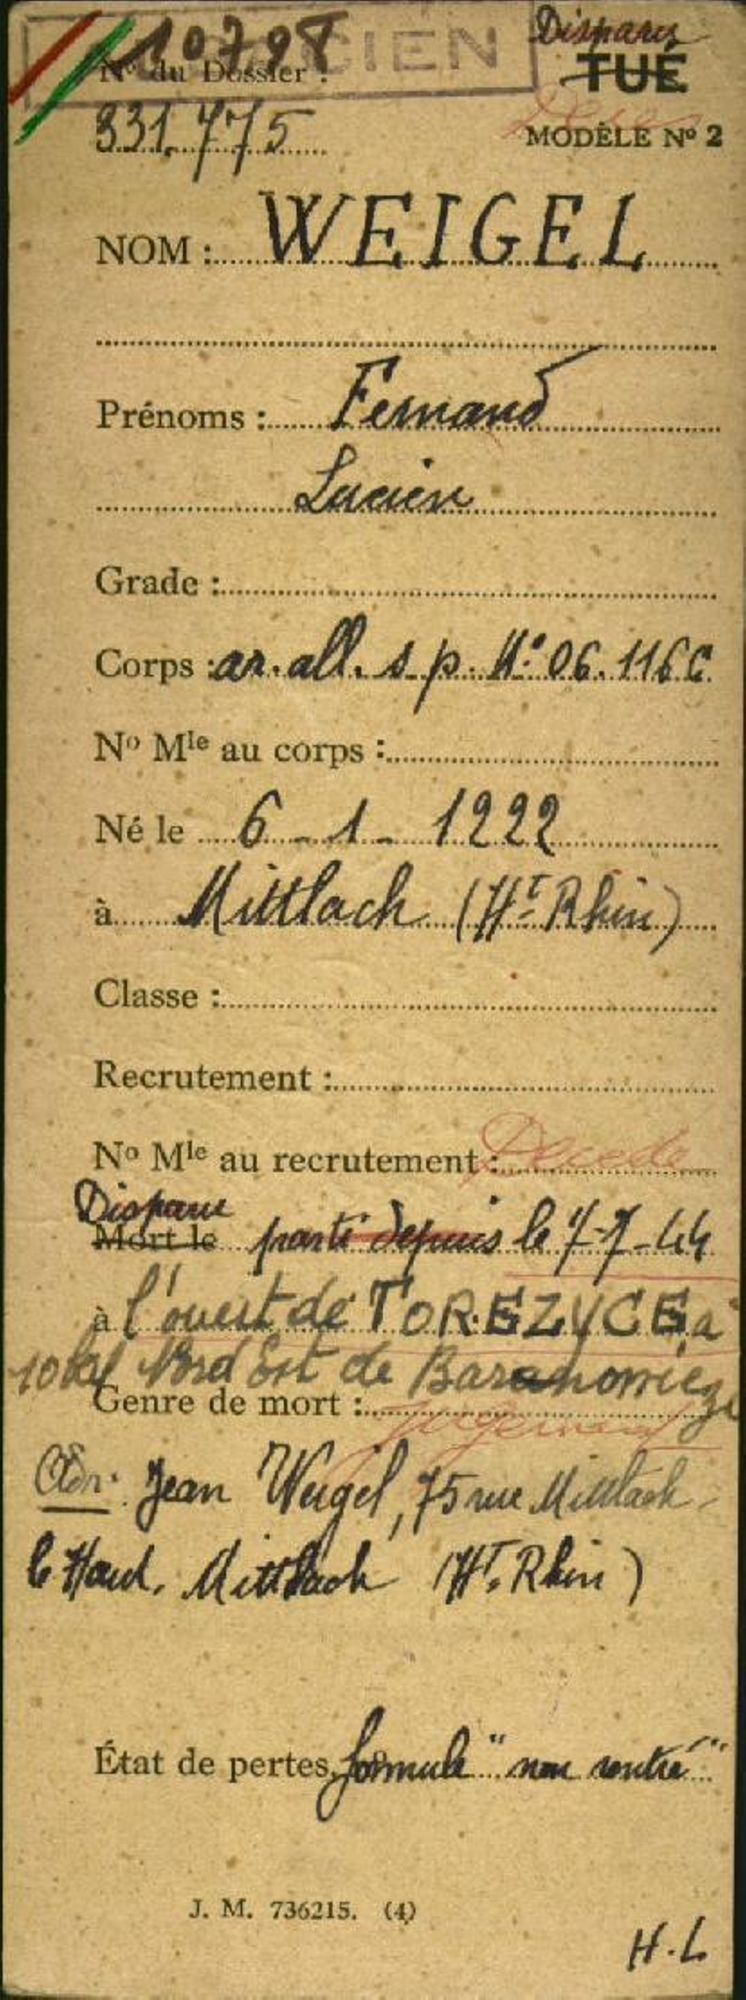 10798 Disparu
N° du Dossier : CIEN TUÉ
331.775 Décès
MODÈLE N° 2
NOM : WEIGEL
Prénoms : Fernand
Lucien
Grade :
Corps : ar. all. s.p. N° 06.116C
N° Mle au corps :
Né le 6 - 1 - 1922
à Mittlach (Ht Rhin)
Classe :
Recrutement :
N° Mle au recrutement : Décédé
Disparu
Mort le parti depuis le 7-7-44
à l'ouest de TOREZYCE à
10 km Nord Est de
Genre de mort : jugement
Adr. Jean Weigel, 75 rue Mittlach
le Haut. Mittlach (Ht. Rhin)
État de pertes, formule "non rentré"
J. M. 736215. (4)
H.L